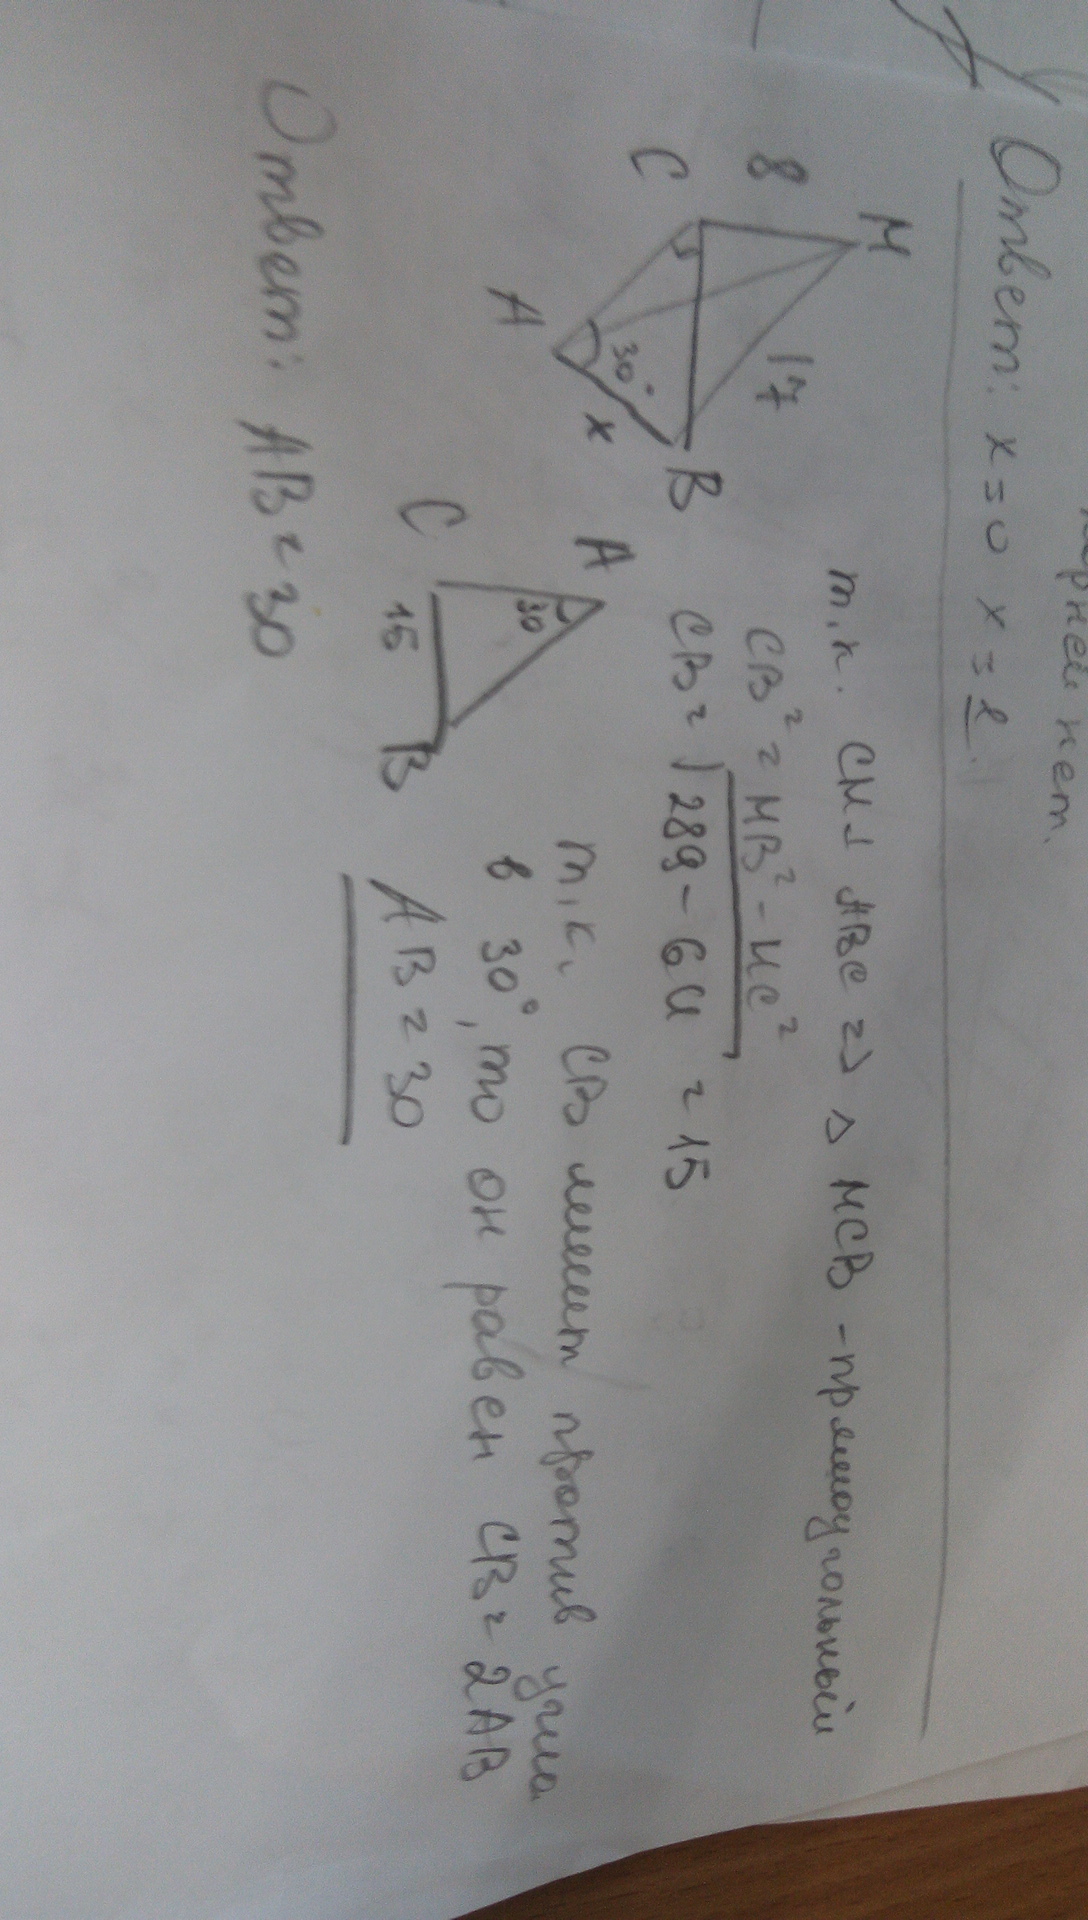 корней нет.
Ответ: x = 0 x = 2.
M
8
17
C
B
A
30°
x
т.к. CM ⊥ ABC => △ MCB - прямоугольный
CB² = MB² - MC²
CB = √289 - 64 = 15
A
30
C
15
B
т.к. CB лежит против угла
в 30°, то он равен CB = 2AB
AB = 30
Ответ: AB = 30